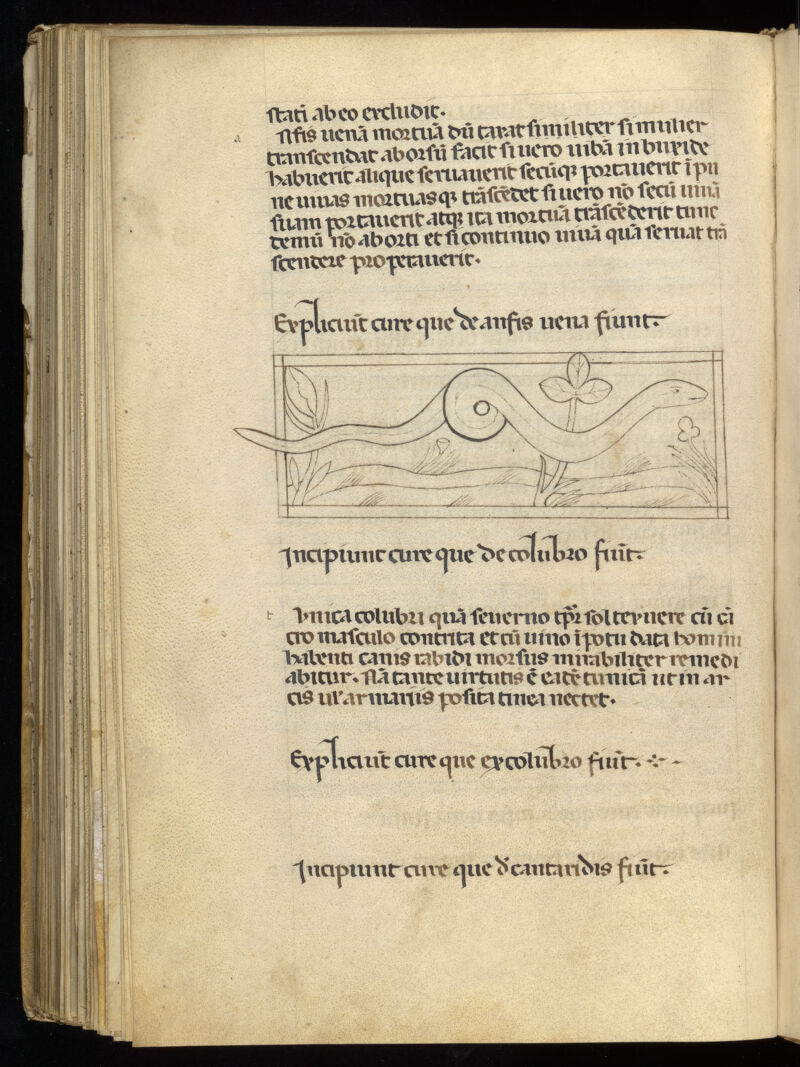 ſtatĩ ab eo excludit.
a
Aſis uenã mortuã dũ taxat similiter si mulier
transcendat aborsũ facit si uero uiuã in buxide
habuerit alique seruauerit secũq; portauerit ĩ pu
ne uiuas mortuasq; trãscẽdet si uero nõ secũ uiuã
suam portauerit atq; ita mortuã trãscẽderit time
demũ nõ aborti et si continuo uiuã quã seruat trã
scendere properauerit.
Expliciũt cure que de anfis uena fiunt.
Incipiunt cure que de colubro fiũt.
t
Vnica colubri quã seuerno tp̃r sol
cũ cĩ
cro masculo contrita et cũ uino ĩ potu data homini
habenti canis rabidi morsus mirabiliter remedi
abitur. Nã tante uirtutis ẽ eadẽ tunica ut in ar
cis ul' armariis posita tinea nectet.
Expliciũt cure que ex colubro fiũt.
Incipiunt cure que d' cantaridis fiũt.